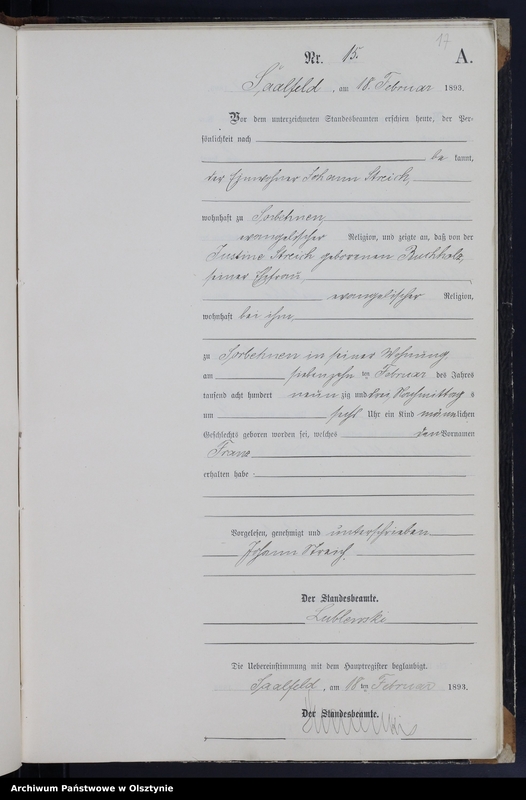 17
Nr. 15. A.
Saalfeld, am 18. Februar 1893.
Vor dem unterzeichneten Standesbeamten erschien heute, der Per-
sönlichkeit nach
be kannt,
der Einwohner Johann Streich,
wohnhaft zu Sorbehnen
evangelischer Religion, und zeigte an, daß von der
Justine Streich geborenen Buchholz,
seiner Ehefrau,
evangelischer Religion,
wohnhaft bei ihm,
zu Sorbehnen in seiner Wohnung
am siebenzehn ten Februar des Jahres
tausend acht hundert neun zig und drei Nachmittag s
um sechs Uhr ein Kind männlichen
Geschlechts geboren worden sei, welches den Vornamen
Franz
erhalten habe
Vorgelesen, genehmigt und unterschrieben
Johann Streich.
Der Standesbeamte.
Lublewski
Die Uebereinstimmung mit dem Hauptregister beglaubigt.
Saalfeld, am 18 ten Februar 1893.
Der Standesbeamte.
Archiwum Państwowe w Olsztynie